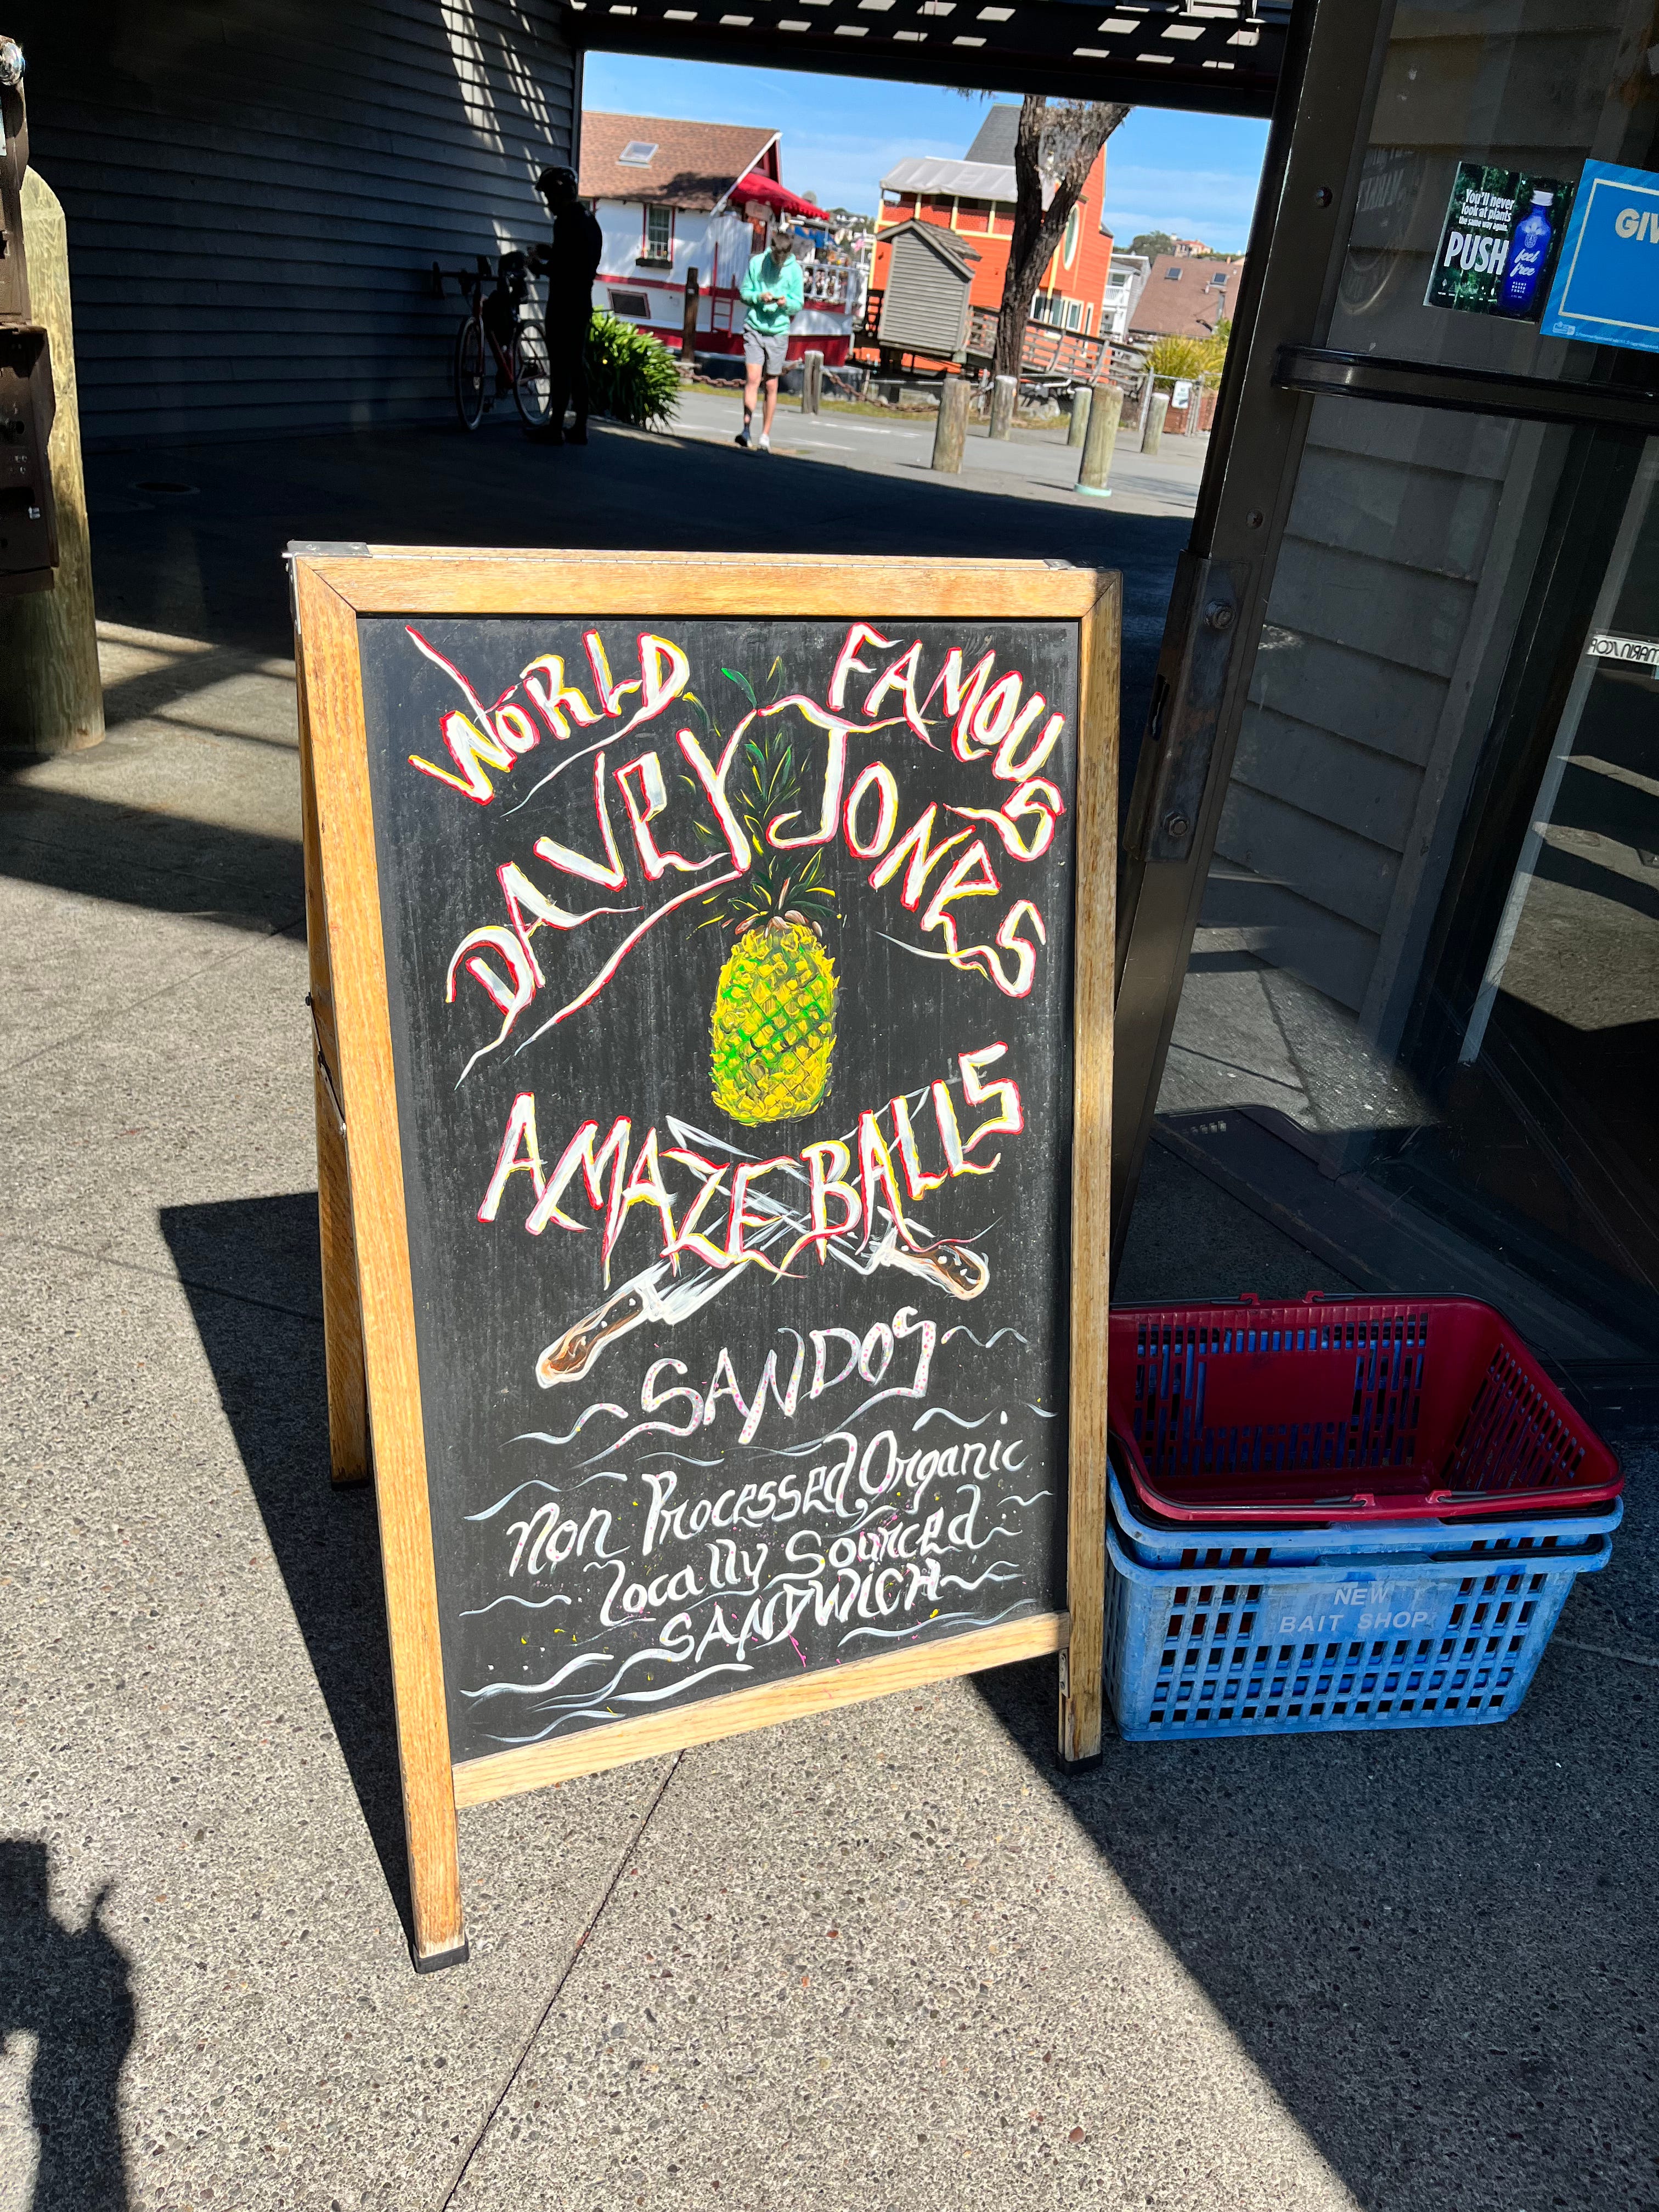 You'll never
look at plants
the same way again.
PUSH
feel
free
GIV
WORLD FAMOUS
DAVEY JONES
AMAZEBALLS
SANDOS
Non Processed, Organic
locally Sourced
SANDWICH
NEW
BAIT SHOP